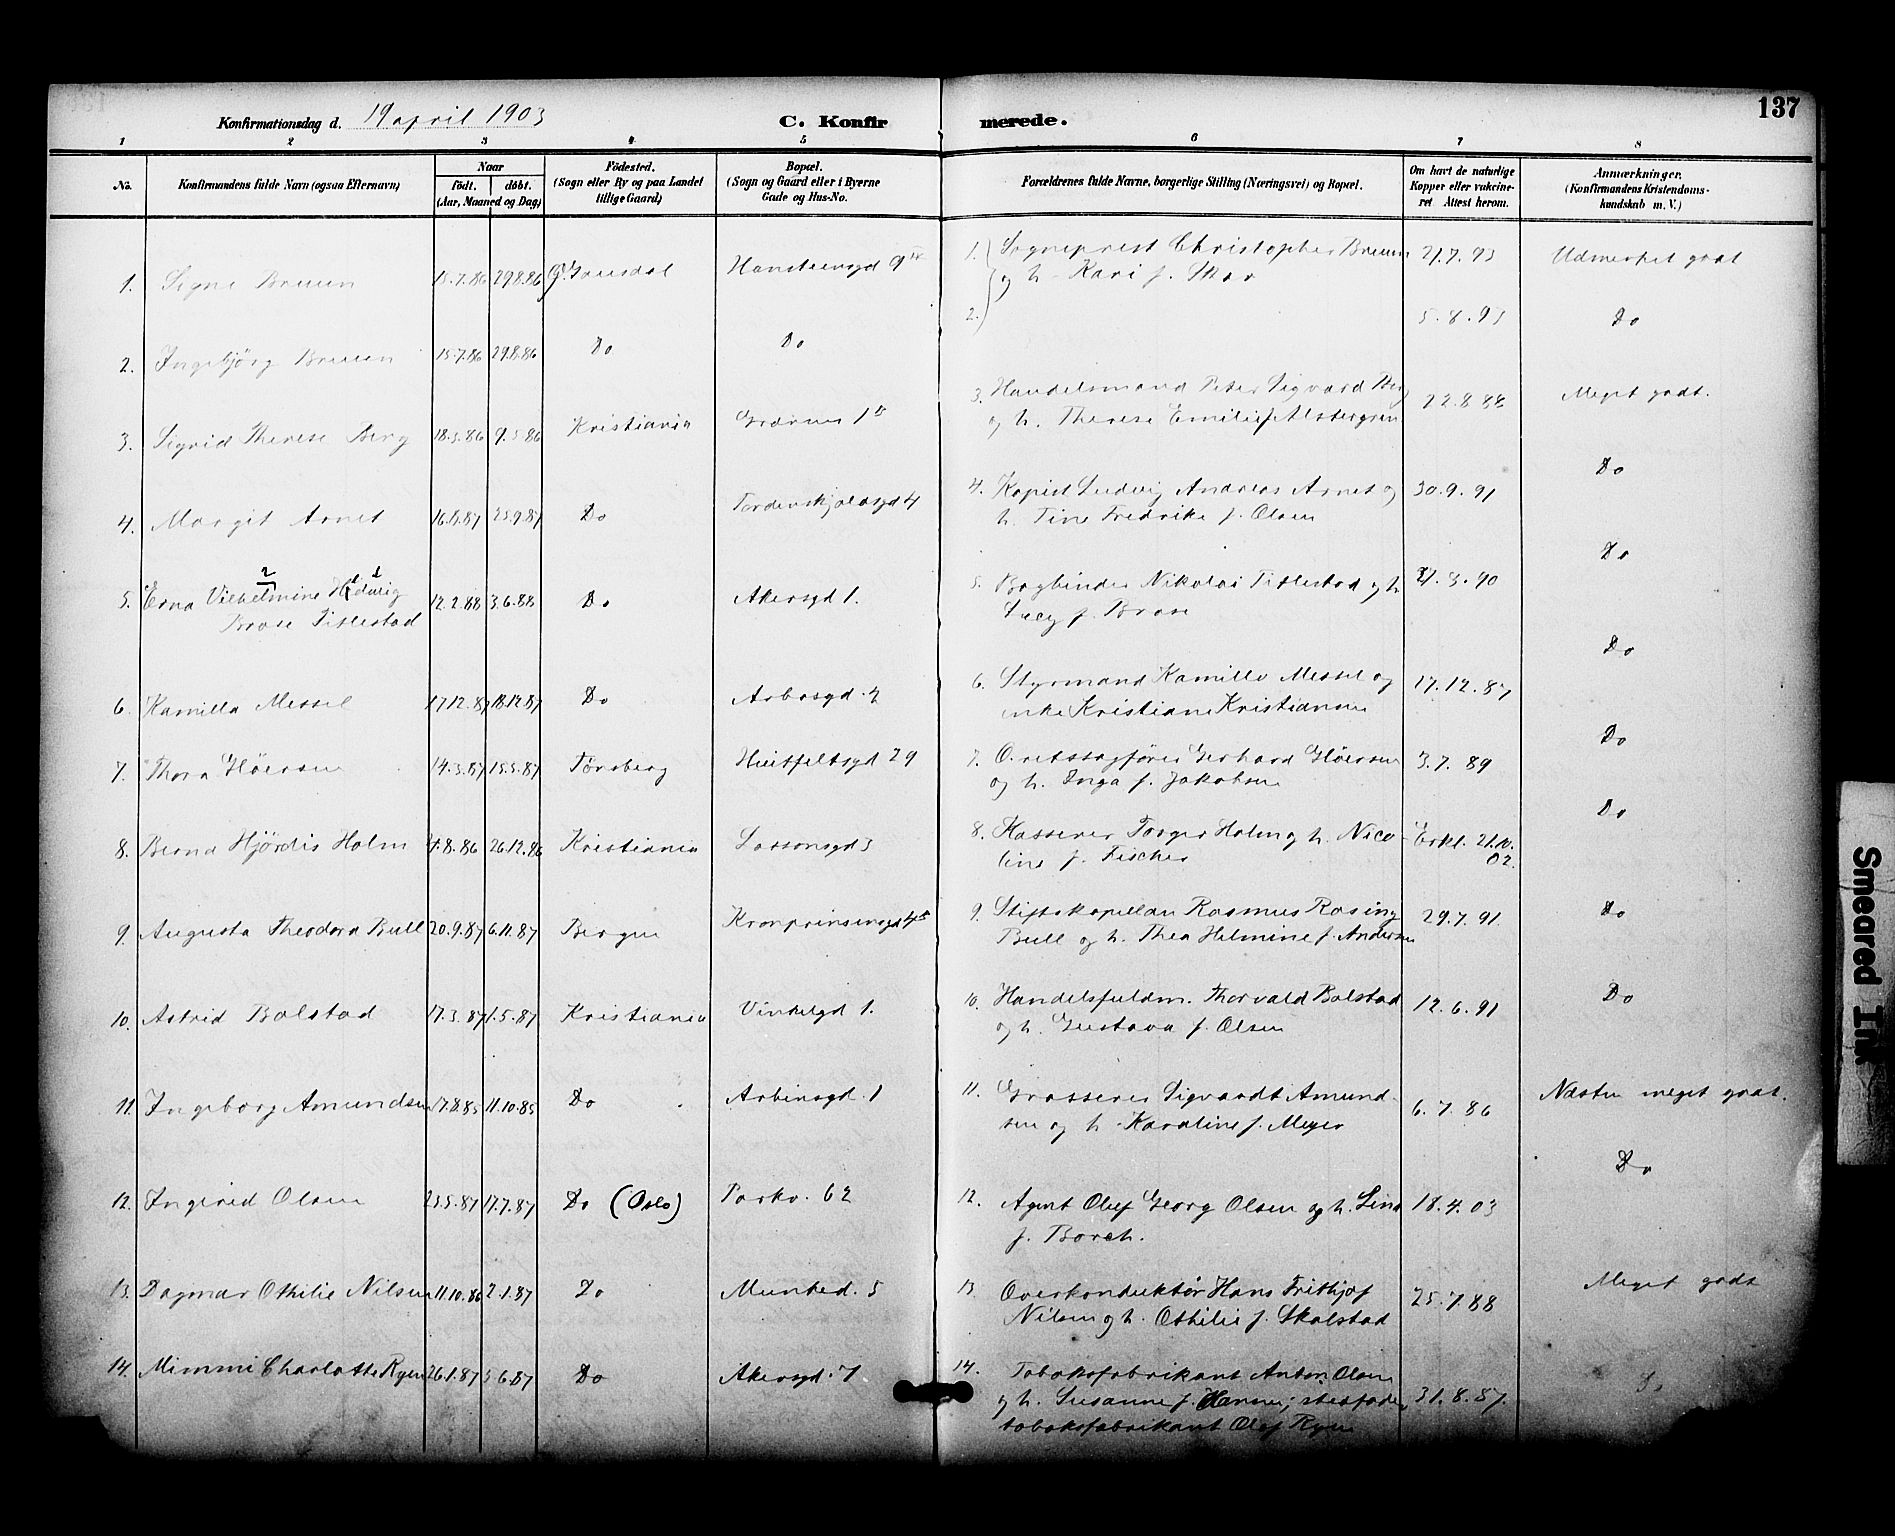 137
Konfirmationsdag d. 19 april 1903
C. Konfirmerede.
1 2 3 4 5 6 7 8
No.
Konfirmandens fulde Navn (ogsaa Efternavn)
Naar
født. døbt.
(Aar, Maaned og Dag)
Fødested.
(Sogn eller By og paa Landet
tillige Gaard)
Bopæl.
(Sogn og Gaard eller i Byerne
Gade og Hus-No.
Forældrenes fulde Navne, borgerlige Stilling (Næringsvei) og Bopæl.
Om havt de naturlige
Kopper eller vakcine-
ret Attest herom.
Anmærkninger.
(Konfirmandens Kristendoms-
kundskab m. V.)
1. Signe Bruun 15.7.86 29.8.86 Gausdal Hansteensgd 9 1. Sogneprest Christopher Bruun 21.7.93 Udmerket godt
og h. Kari f. Skar
2. Ingebjörg Bruun 15.7.86 29.8.86 Do Do 2. 5.8.93 Do
3. Sigrid Therese Berg 18.3.86 9.5.86 Kristiania 3. Handelsmand Peter Sigvard Berg 22.8.88 Meget godt.
og h. Therese Emilie f.
4. Margit Arnet 16.8.87 25.9.87 Do Tordenskjoldsgd 4 4. Kopist Ludvig Andreas Arnet og 30.9.91 Do
h. Tine Fredrike f. Olsen
5. Erna Vilhelmine Hedvig 12.2.88 3.6.88 Do Akersgd 1. 5. Bogbinder Nikolai Tillestad og h. Do
Brose Tillestad
Lucy f. Brose
6. Kamilla Messel 17.12.87 18.12.87 Do Arbosgd. 2 6. Styrmand Kamillo Messel og 17.12.87 Do
enke Kristiane Kristiansen
7. Thora Gløersen 14.3.87 15.5.87 Tönsberg Huitfeltsgd 29 7. O.retssagfører Gerhard Gløersen 3.7.89 Do
og h. Inga f. Jakobsen
8. Berna Hjördis Holm 8.86 26.12.86 Kristiania Lassonsgd 3 8. Kasserer Torger Holm og h. Nico- Erkl. 21.10. Do
line f. Fischer 02.
9. Augusta Theodora Bull 20.9.87 6.11.87 Bergen Kronprinsensgd 4 9. Stiftskapellan Rasmus Rosing 29.7.91 Do
Bull og h. Thea Helmine f. Andersen
10. Astrid Bolstad 17.3.87 1.5.87 Kristiania Vinkelgd 1. 10. Handelsfuldm. Thorvald Bolstad 12.6.91 Do
og h. Gustava f. Olsen
11. Ingeborg Amundsen 17.8.85 11.10.85 Do Arbinsgd. 1 11. Grosserer Sigvardt Amund- 6.7.86 Næsten meget godt.
sen og h. Karoline f. Meyer
12. Ingerid Olsen 23.5.87 17.7.87 Do (Oslo) Parkv. 62 12. Agent Oluf Georg Olsen og h. Lina 18.4.03 Do
f. Borch.
13. Dagmar Othilie Nilsen 11.10.86 2.1.87 Do Munked. 5 13. Overkonduktör Hans Frithjof 25.7.88 Meget godt
Nilsen og h. Othilie f. Skolstad
14. Mimmi Charlotte Ryen 26.1.87 5.6.87 Do Akersgd. 7 14. Tobaksfabrikant Anton Olsen
og h. Susanne f. Hanne; stedfader 31.8.87. Do
tobaksfabrikant Olef Ryen
Smeared Ink